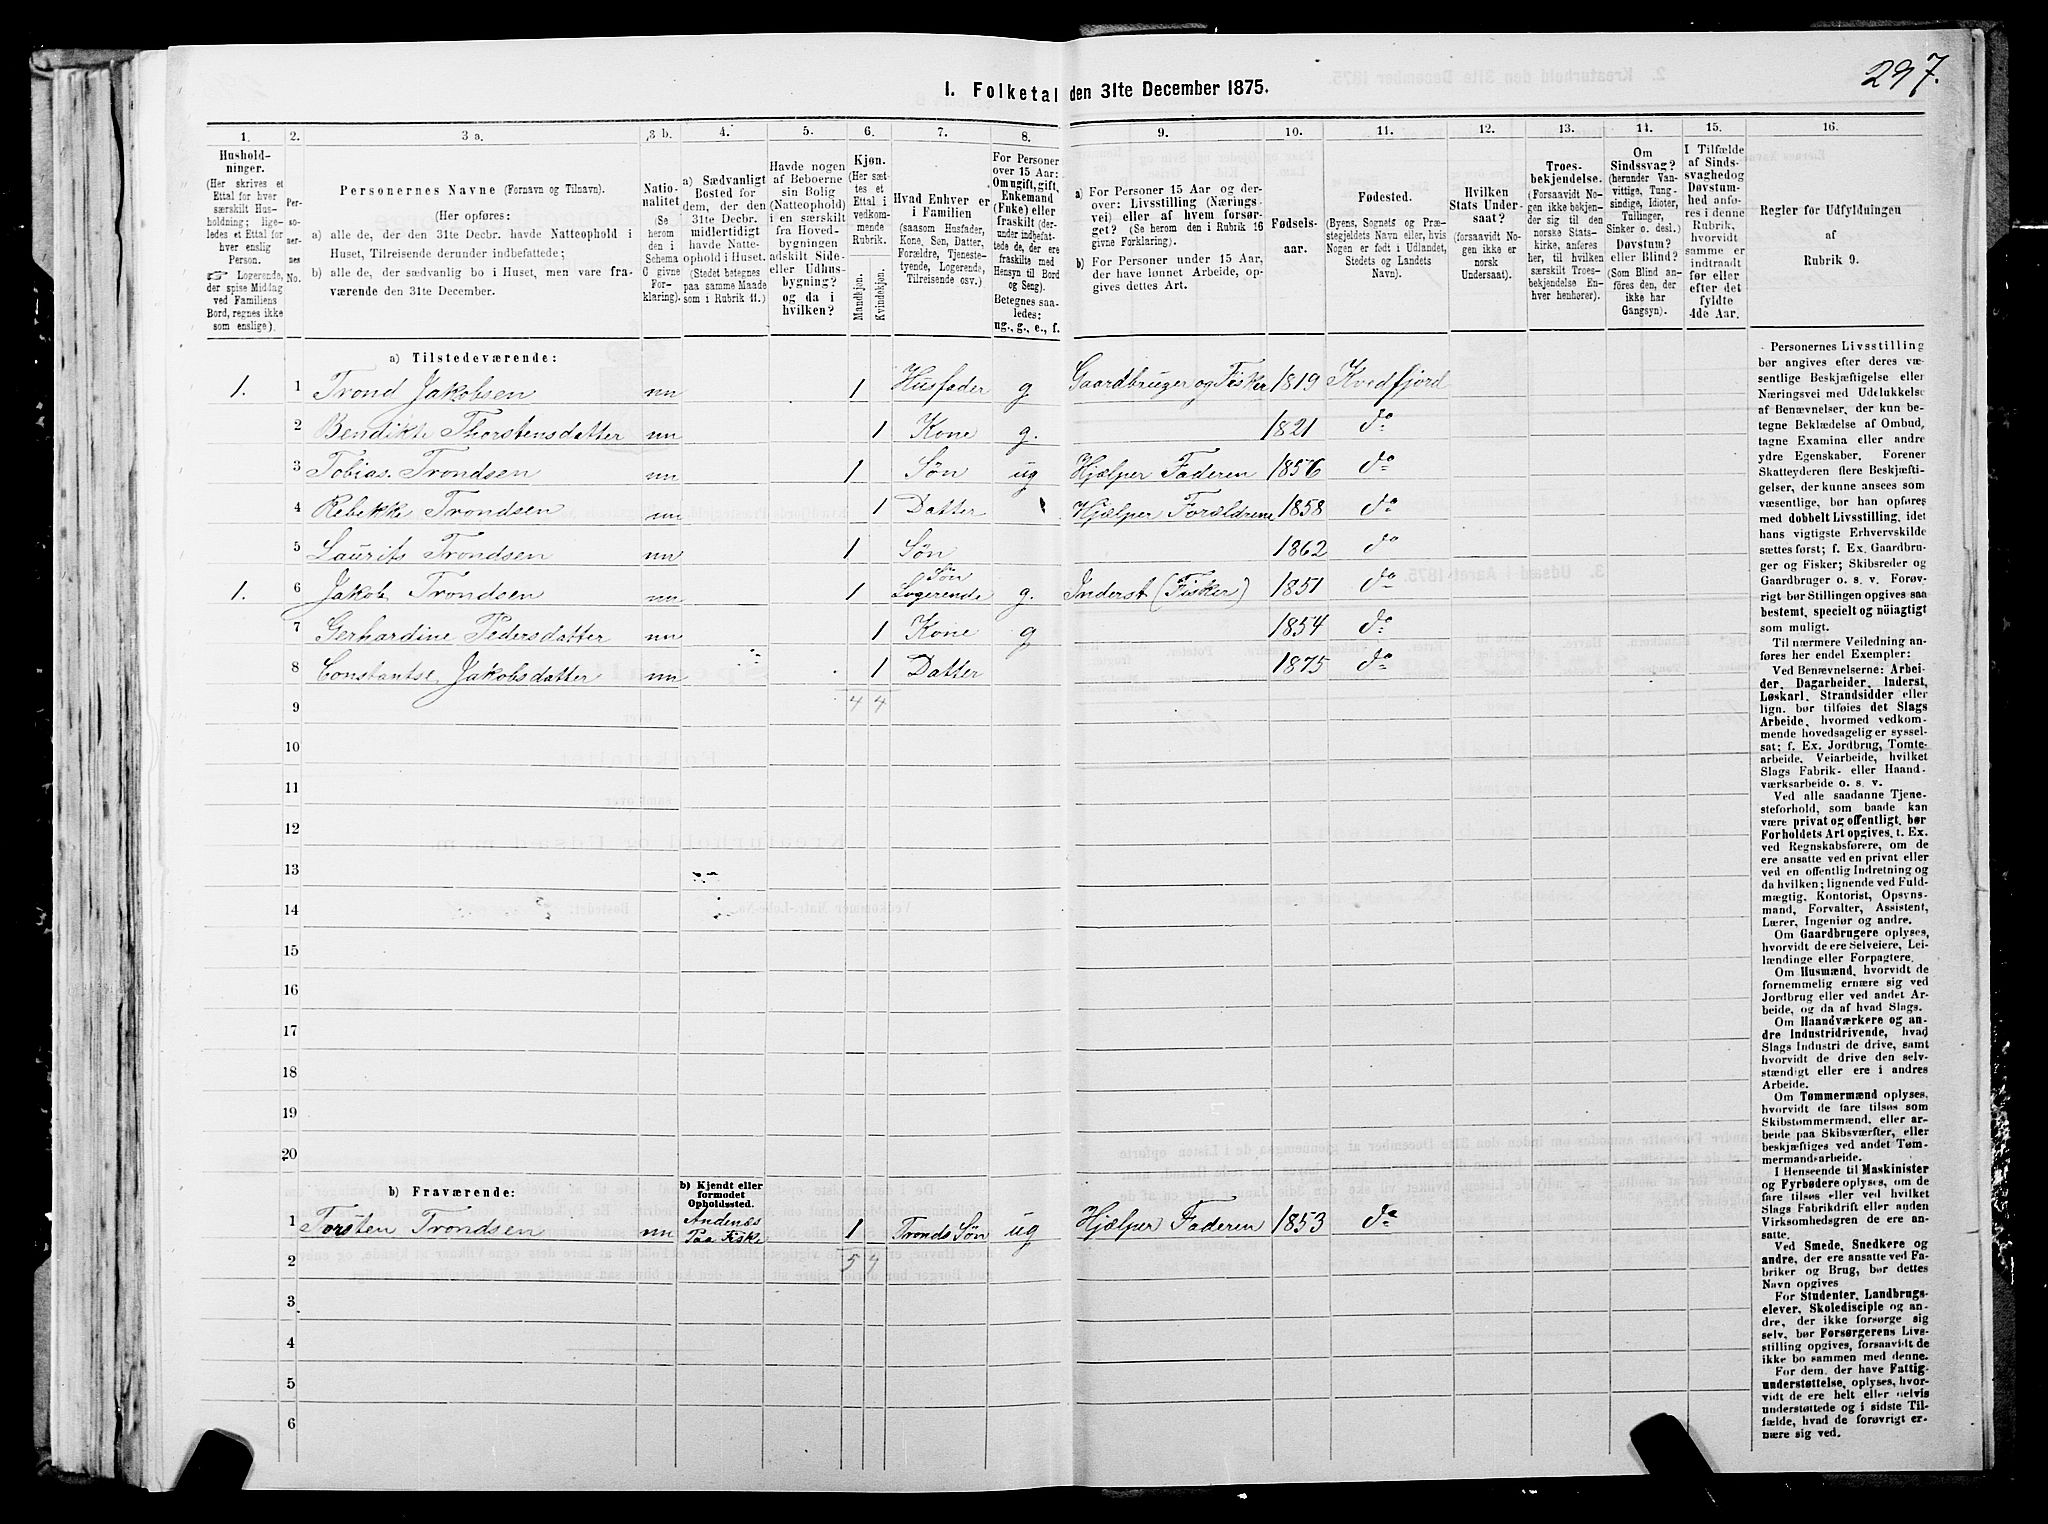 297.
1. Folketal den 31te December 1875.
1. 2. 3 a. 3 b. 4. 5. 6. 7. 8. 9. 10. 11. 12. 13. 14. 15. 16.
Husholdninger.
(Her skrives et
Ettal for hver
særskilt Husholdning;
ligeledes et Ettal for
hver enslig
Person.
Logerende,
der spise Middag
ved Familiens
Bord, regnes ikke
som enslige).
Personernes No.
Personernes Navne (Fornavn og Tilnavn).
(Her opføres:
a) alle de, der den 31te Decbr. havde Natteophold i
Huset, Tilreisende derunder indbefattede;
b) alle de, der sædvanlig bo i Huset, men vare fraværende
den 31te December.
Nationalitet
(Se
herom
den i
Schema
C givne
Forklaring).
a) Sædvanligt
Bosted for
dem, der den
31te Decbr.
midlertidigt
havde Natteophold
i Huset.
(Stedet betegnes
paa samme Maade
som i Rubrik 11.)
Havde nogen
af Beboerne
sin Bolig
(Natteophold)
i en særskilt
fra Hovedbygningen
adskilt Side-
eller Udhusbygning?
og da i
hvilken?
Kjøn.
(Her sættes
et
Ettal i
vedkommende
Rubrik.
Mandkjøn.
Kvindekjøn.
Hvad Enhver er
i Familien
(saasom Husfader,
Kone, Søn, Datter,
Forældre, Tjenestetyende,
Logerende,
Tilreisende osv.)
For Personer
over 15 Aar:
Om ugift, gift,
Enkemand
(Enke) eller
fraskilt (derunder
indbefattede
de, der ere
fraskilte med
Hensyn til Bord
og Seng).
Betegnes saaledes:
ug., g., e., f.
a) For Personer 15 Aar og derover:
Livsstilling (Næringsvei)
eller af hvem forsørget?
(Se herom den i Rubrik 16
givne Forklaring).
b) For Personer under 15 Aar,
der have lønnet Arbeide, opgives
dettes Art.
Fødselsaar.
Fødested.
(Byens, Sognets og Præstegjeldets
Navn eller, hvis
Nogen er født i Udlandet,
Stedets og Landets
Navn).
Hvilken
Stats Undersaat?
(forsaavidt Nogen
ikke er
norsk
Undersaat).
Troesbekjendelse.
(Forsaavidt Nogen
ikke bekjender
sig til den
norske Statskirke,
anføres
her, til hvilken
særskilt Troesbekjendelse
Enhver
henhører).
Om
Sindssvag?
(herunder Vanvittige,
Tungsindige,
Idioter,
Tullinger,
Sinker o. desl.)
Døvstum?
eller Blind?
(Som Blind anføres
den, der
ikke har
Gangsyn).
I Tilfælde
af Sindssvaghed
og
Døvstumhed
anføres
i denne
Rubrik,
hvorvidt
samme er
indtraadt
før eller
efter det
fyldte
4de Aar.
Regler for Udfyldningen
af
Rubrik 9.
a) Tilstedeværende:
1. 1 Trond Jakobsen nn 1 Husfader g Gaardbruger og Fisker 1819 Kvedfjord
2 Bendikte Thorstensdatter nn 1 Kone g. 1821 do
3 Tobias Trondsen nn 1 Søn ug Hjælper Faderen 1856 do
4 Rebekke Trondsen nn 1 Datter Hjælper Forældrene 1858 do
5 Laurits Trondsen nn 1 Søn 1862 do
1. 6 Jakob Trondsen nn 1 Søn Logerende g. Inderst (Fisker) 1851 do
7 Gerhardine Pedersdatter nn 1 Kone g 1854 do
8 Constantse Jakobsdatter nn 1 Datter 1875 do
9 4 4
10
11
12
13
14
15
16
17
18
19
20
b) Fraværende:
b) Kjendt eller
formodet
Opholdssted.
1 Torsten Trondsen nn Andenæs Paa Fiske 1 Tronds Søn ug Hjælper Faderen 1853 do
2 5 4
3
4
5
6
Personernes Livsstilling
bør angives efter deres væsentlige
Beskjæftigelse eller
Næringsvei med Udelukkelse
af Benævnelser, der kun betegne
Beklædelse af Ombud,
tagne Examina eller andre
ydre Egenskaber. Forener
Skatteyderen flere Beskjæftigelser,
der kunne ansees som
væsentlige, bør han opføres
med dobbelt Livsstilling, idet
hans vigtigste Erhvervskilde
sættes først; f. Ex. Gaardbruger
og Fisker; Skibsreder og
Gaardbruger o. s. v. Forøvrigt
bør Stillingen opgives saa
bestemt, specielt og nöiagtigt
som muligt.
Til nærmere Veiledning anføres
her endel Exempler:
Ved Benævnelserne: Arbeider,
Dagarbeider, Inderst,
Løskarl, Strandsidder eller
lign. bør tilføies det Slags
Arbeide, hvormed vedkommende
hovedsagelig er sysselsat;
f. Ex. Jordbrug, Tomtearbeide,
Veiarbeide, hvilket
Slags Fabrik- eller Haandværksarbeide
o. s. v.
Ved alle saadanne Tjenesteforhold,
som baade kan
være privat og offentligt, bør
Forholdets Art opgives, t. Ex.
ved Regnskabsførere, om de
ere ansatte ved en privat eller
ved en offentlig Indretning og
da hvilken; lignende ved Fuldmægtig,
Kontorist, Opsynsmand,
Forvalter, Assistent,
Lærer, Ingeniør og andre.
Om Gaardbrugere oplyses,
hvorvidt de ere Selveiere, Leilændinge
eller Forpagtere.
Om Husmænd, hvorvidt de
fornemmelig ernære sig ved
Jordbrug eller ved andet Arbeide,
og da af hvad Slags.
Om Haandværkere og andre
Industridrivende, hvad
Slags Industri de drive, samt
hvorvidt de drive den selvstændigt
eller ere i andres
Arbeide.
Om Tømmermænd oplyses,
hvorvidt de fare tilsøs som
Skibstømmermænd, eller arbeide
paa Skibsværfter, eller
beskjæftiges ved andet Tømmermandsarbeide.
I Henseende til Maskinister
og Fyrbødere oplyses, om de
fare tilsøs eller ved hvilket
Slags Fabrikdrift eller anden
Virksomhedsgren de ere ansatte.
Ved Smede, Snedkere og
andre, der ere ansatte ved Fabriker
og Brug, bør dettes
Navn opgives
For Studenter, Landbrugselever,
Skoledisciple og andre,
der ikke forsørge sig
selv, bør Forsørgerens Livsstilling
opgives, forsaavidt de
ikke bo sammen med denne.
For dem, der have Fattigunderstøttelse,
oplyses, hvorvidt
de ere helt eller delvis
understøttede og i sidste Tilfælde,
hvad de forøvrigt ernære
sig ved.